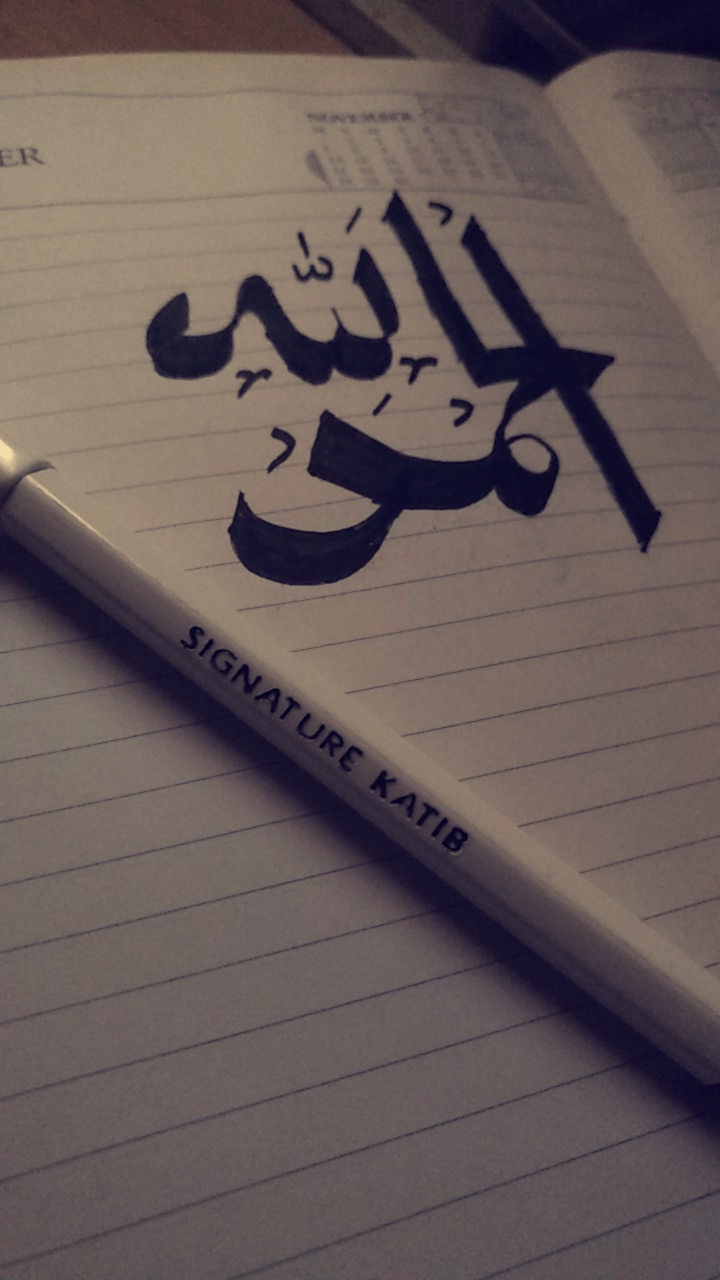 ER
NOVEMBER
الحمد لله
SIGNATURE KATIB